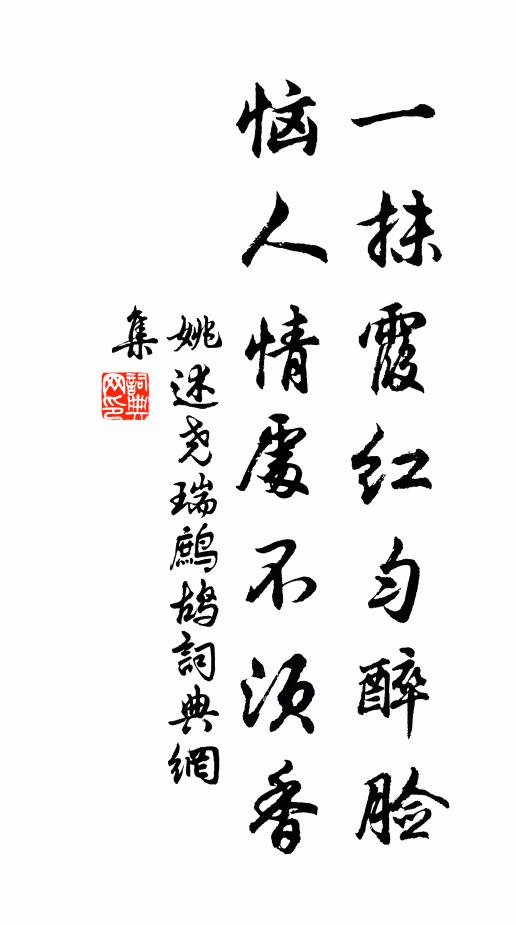 一抹霞红匀醉脸
恼人情處不须香
姚述尧瑞鹧鸪詞典網
集
詞典
网印